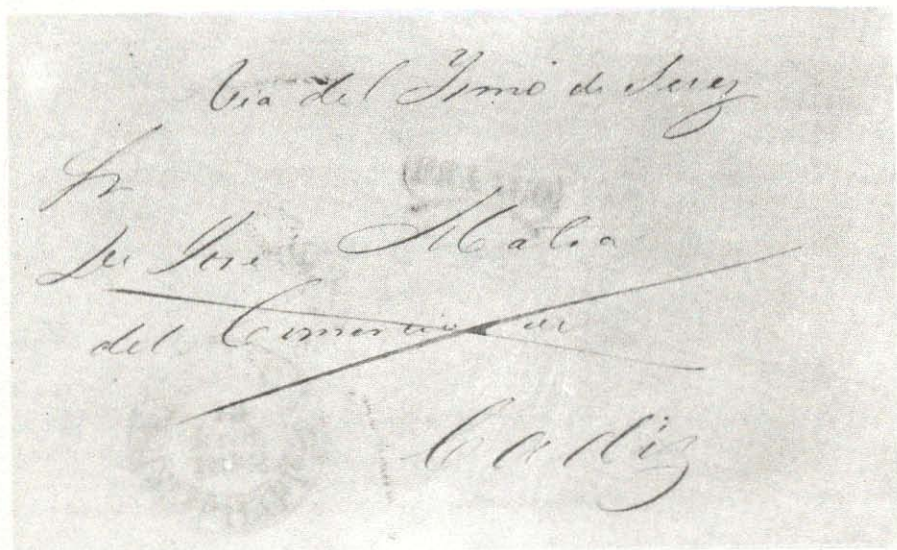 Via del Ysmo de Suez
FRANCO
Sr
Dn José Malia
del Comercio en
Cadiz